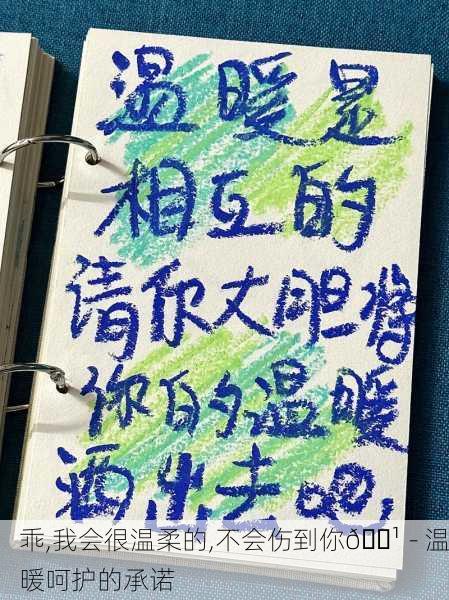 温暖是
相互的
请你大胆将
你的温暖
洒出去吧,
乖,我会很温柔的,不会伤到你ð¹ - 温
暖呵护的承诺